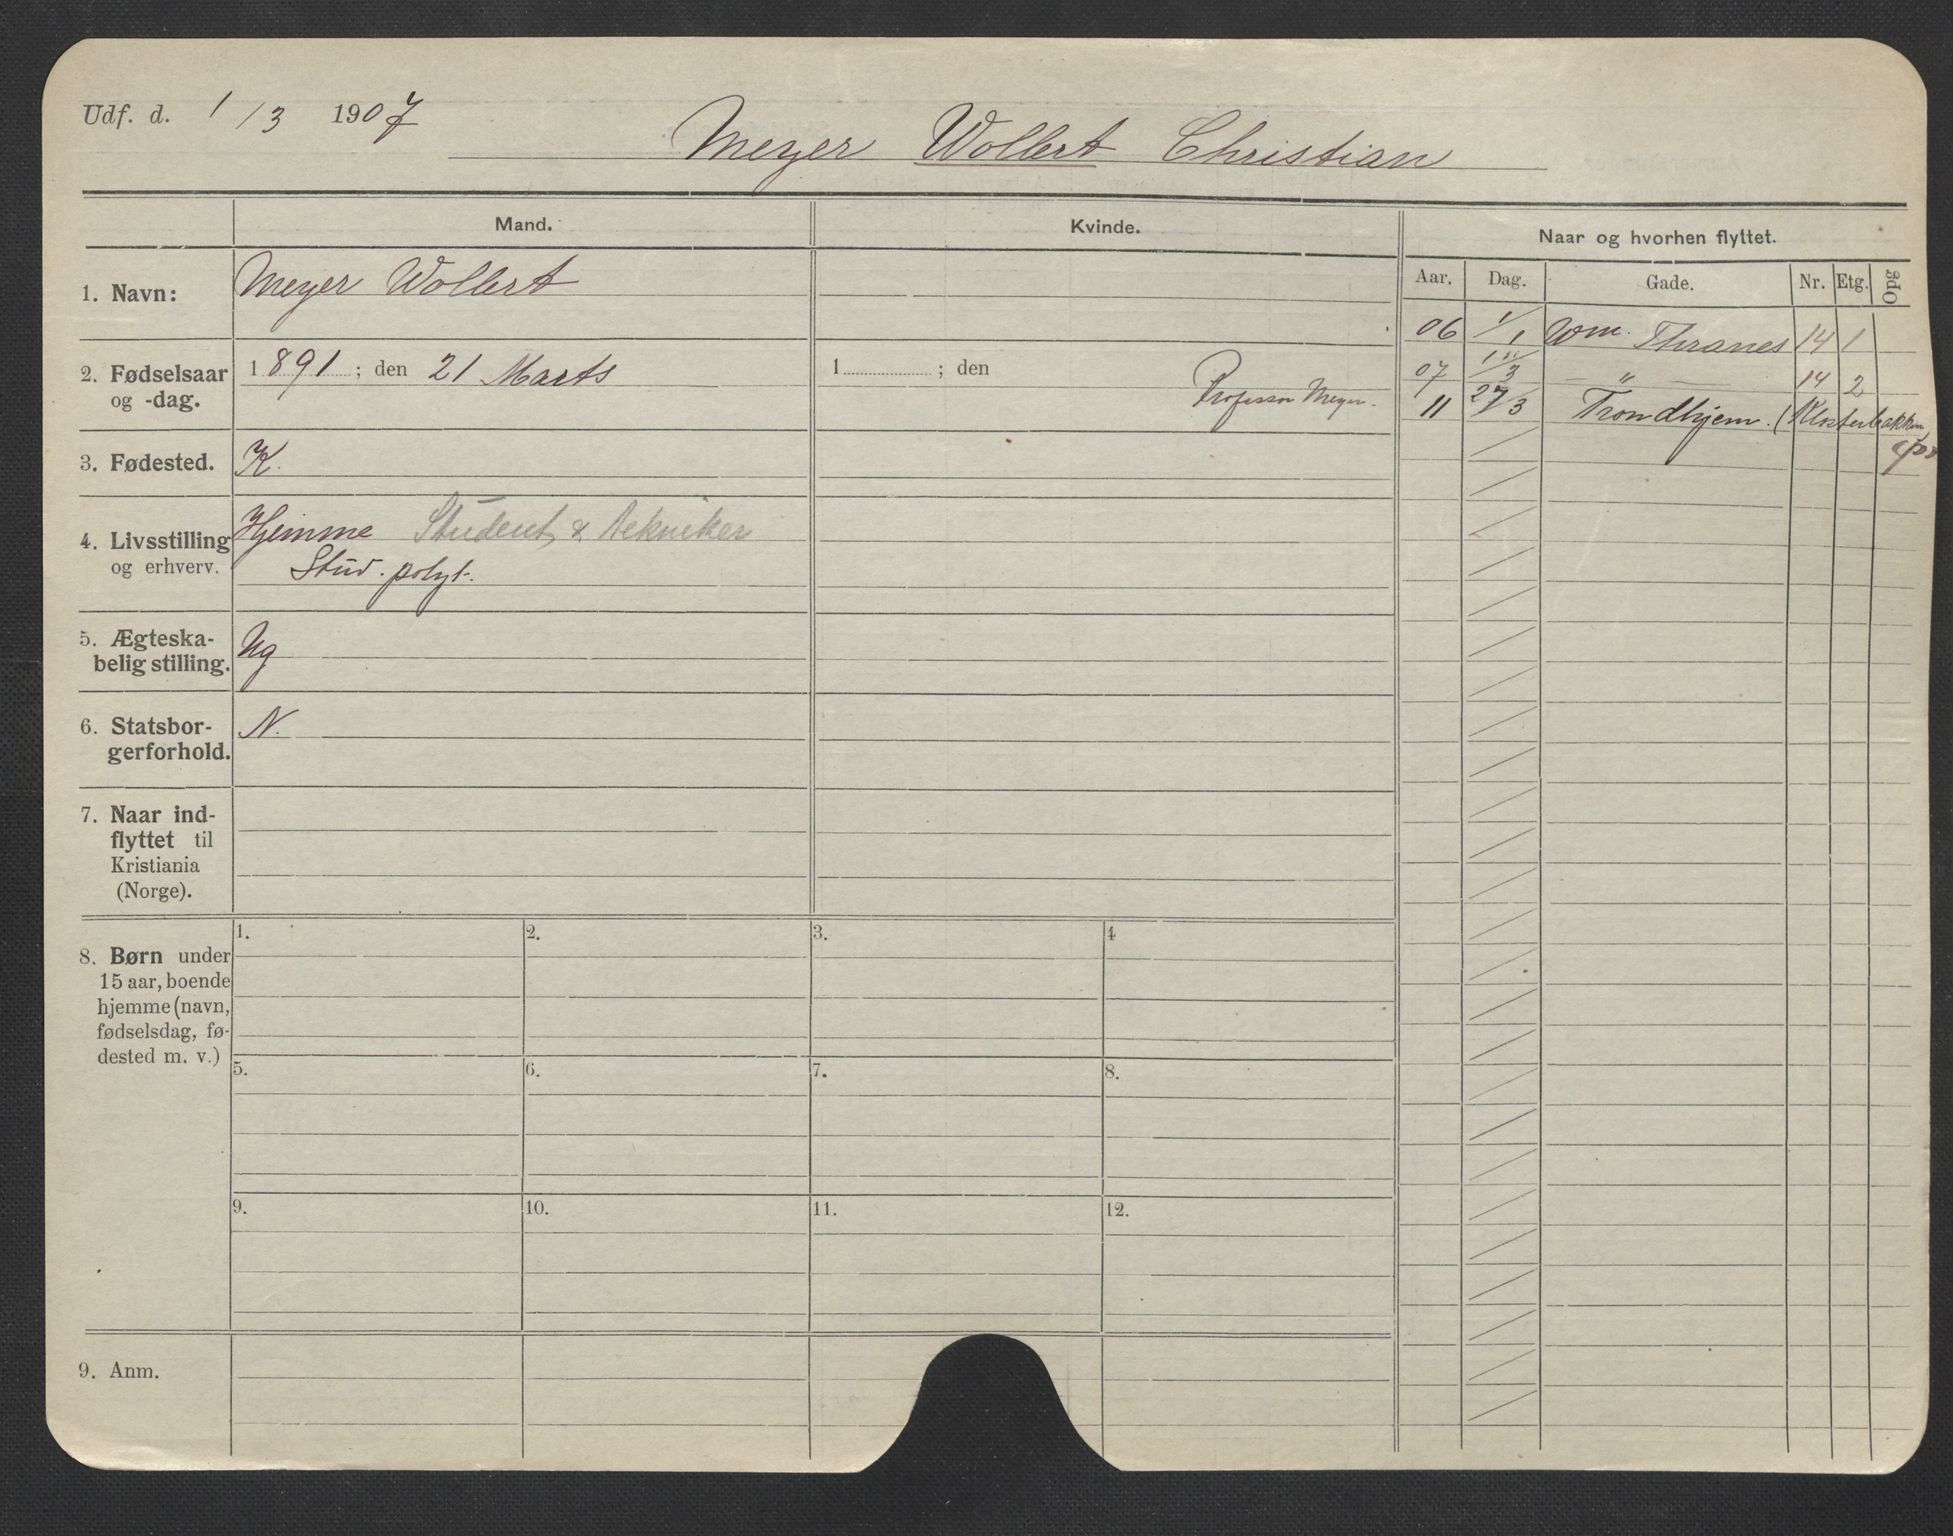 Udf. d. 1/3 1907
Meyer Wollert Christian
Mand.
Kvinde.
Naar og hvorhen flyttet.
Aar. Dag. Gade. Nr. Etg. Opg
1. Navn: Meyer Wollert
06 1/1 Wm. Thranes 14 1
2. Fødselsaar
og -dag.
1891; den 21 Marts
1 ; den
Professor Meyer.
07 1/3 " 14 2
11 27/3 Trondhjem. (Klosterbakken
3. Fødested. K.
4. Livsstilling
og erhverv.
Hjemme Student & tekniker
Stud. polyt.
5. Ægteska-
belig stilling.
Ug
6. Statsbor-
gerforhold.
N.
7. Naar ind-
flyttet til
Kristiania
(Norge).
8. Børn under
15 aar, boende
hjemme (navn,
fødselsdag, fø-
dested m. v.)
1. 2. 3. 4
5. 6. 7. 8.
9. 10. 11. 12.
9. Anm.